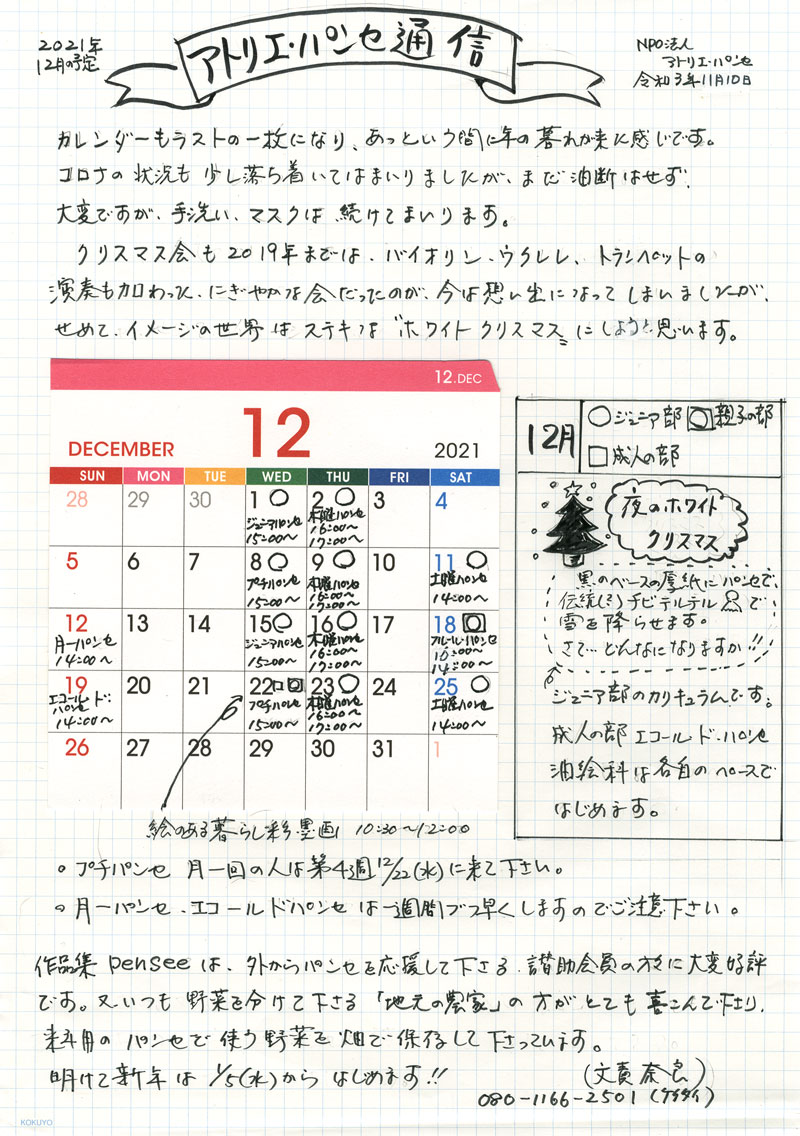 2021年
12月の予定
アトリエ・パンセ通信
NPO法人
アトリエ・パンセ
令和3年11月10日
カレンダーもラストの一枚になり、あっという間に年の暮れが来た感じです。
コロナの状況も少し落ち着いてはまいりましたが、まだ油断はせず、
大変ですが、手洗い、マスクは続けてまいります。
クリスマス会も2019年までは、バイオリン、ウクレレ、トランペットの
演奏も加わった、にぎやかな会だったのが、今は思い出になってしまいましたが、
せめて、イメージの世界はステキな"ホワイトクリスマス"にしようと思います。
12.DEC
DECEMBER 12 2021
SUN MON TUE WED THU FRI SAT
28 29 30 1○ 2○ 3 4
ジュニアパンセ 15:00〜
木曜パンセ 16:00〜 17:00〜
5 6 7 8○ 9○ 10 11○
プチパンセ 15:00〜
木曜パンセ 16:00〜 17:00〜
土曜パンセ 14:00〜
12 13 14 15○ 16○ 17 18
月一パンセ 14:00〜
ジュニアパンセ 15:00〜
木曜パンセ 16:00〜 17:00〜
フルール・パンセ 10:00〜 14:00〜
19 20 21 22 23○ 24 25○
エコールド・パンセ 14:00〜
プチパンセ 15:00〜
木曜パンセ 16:00〜 17:00〜
土曜パンセ 14:00〜
26 27 28 29 30 31 1
絵のある暮らし彩墨画 10:30〜12:00
12月
○ジュニア部 親子の部
□成人の部
夜のホワイト
クリスマス
黒のベースの厚紙にパンセで、
伝統(?)チビテルテルで
雪を降らせます。
さて…どんなになりますか!!
ジュニア部のカリキュラムです。
成人の部 エコールド・パンセ
油絵科は各自のペースで
はじめます。
。プチパンセ 月一回の人は第4週12/22(水)に来て下さい。
。月一パンセ・エコールドパンセは一週間づつ早くしますのでご注意下さい。
作品集penséeは、外からパンセを応援して下さる、賛助会員の方に大変好評
です。又いつも野菜を分けて下さる「地元の農家」の方がとても喜こんで下さり、
来年用のパンセで使う野菜を畑で保存して下さっています。
明けて新年は1/5(水)からはじめます!!
(文責奈良)
080-1166-2501(ケイタイ)
KOKUYO